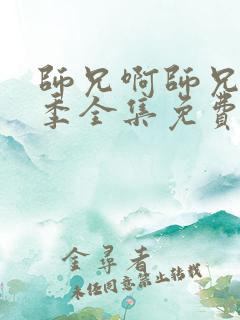 師兄啊師兄
季全集免費
金尋者
未經同意禁止转载